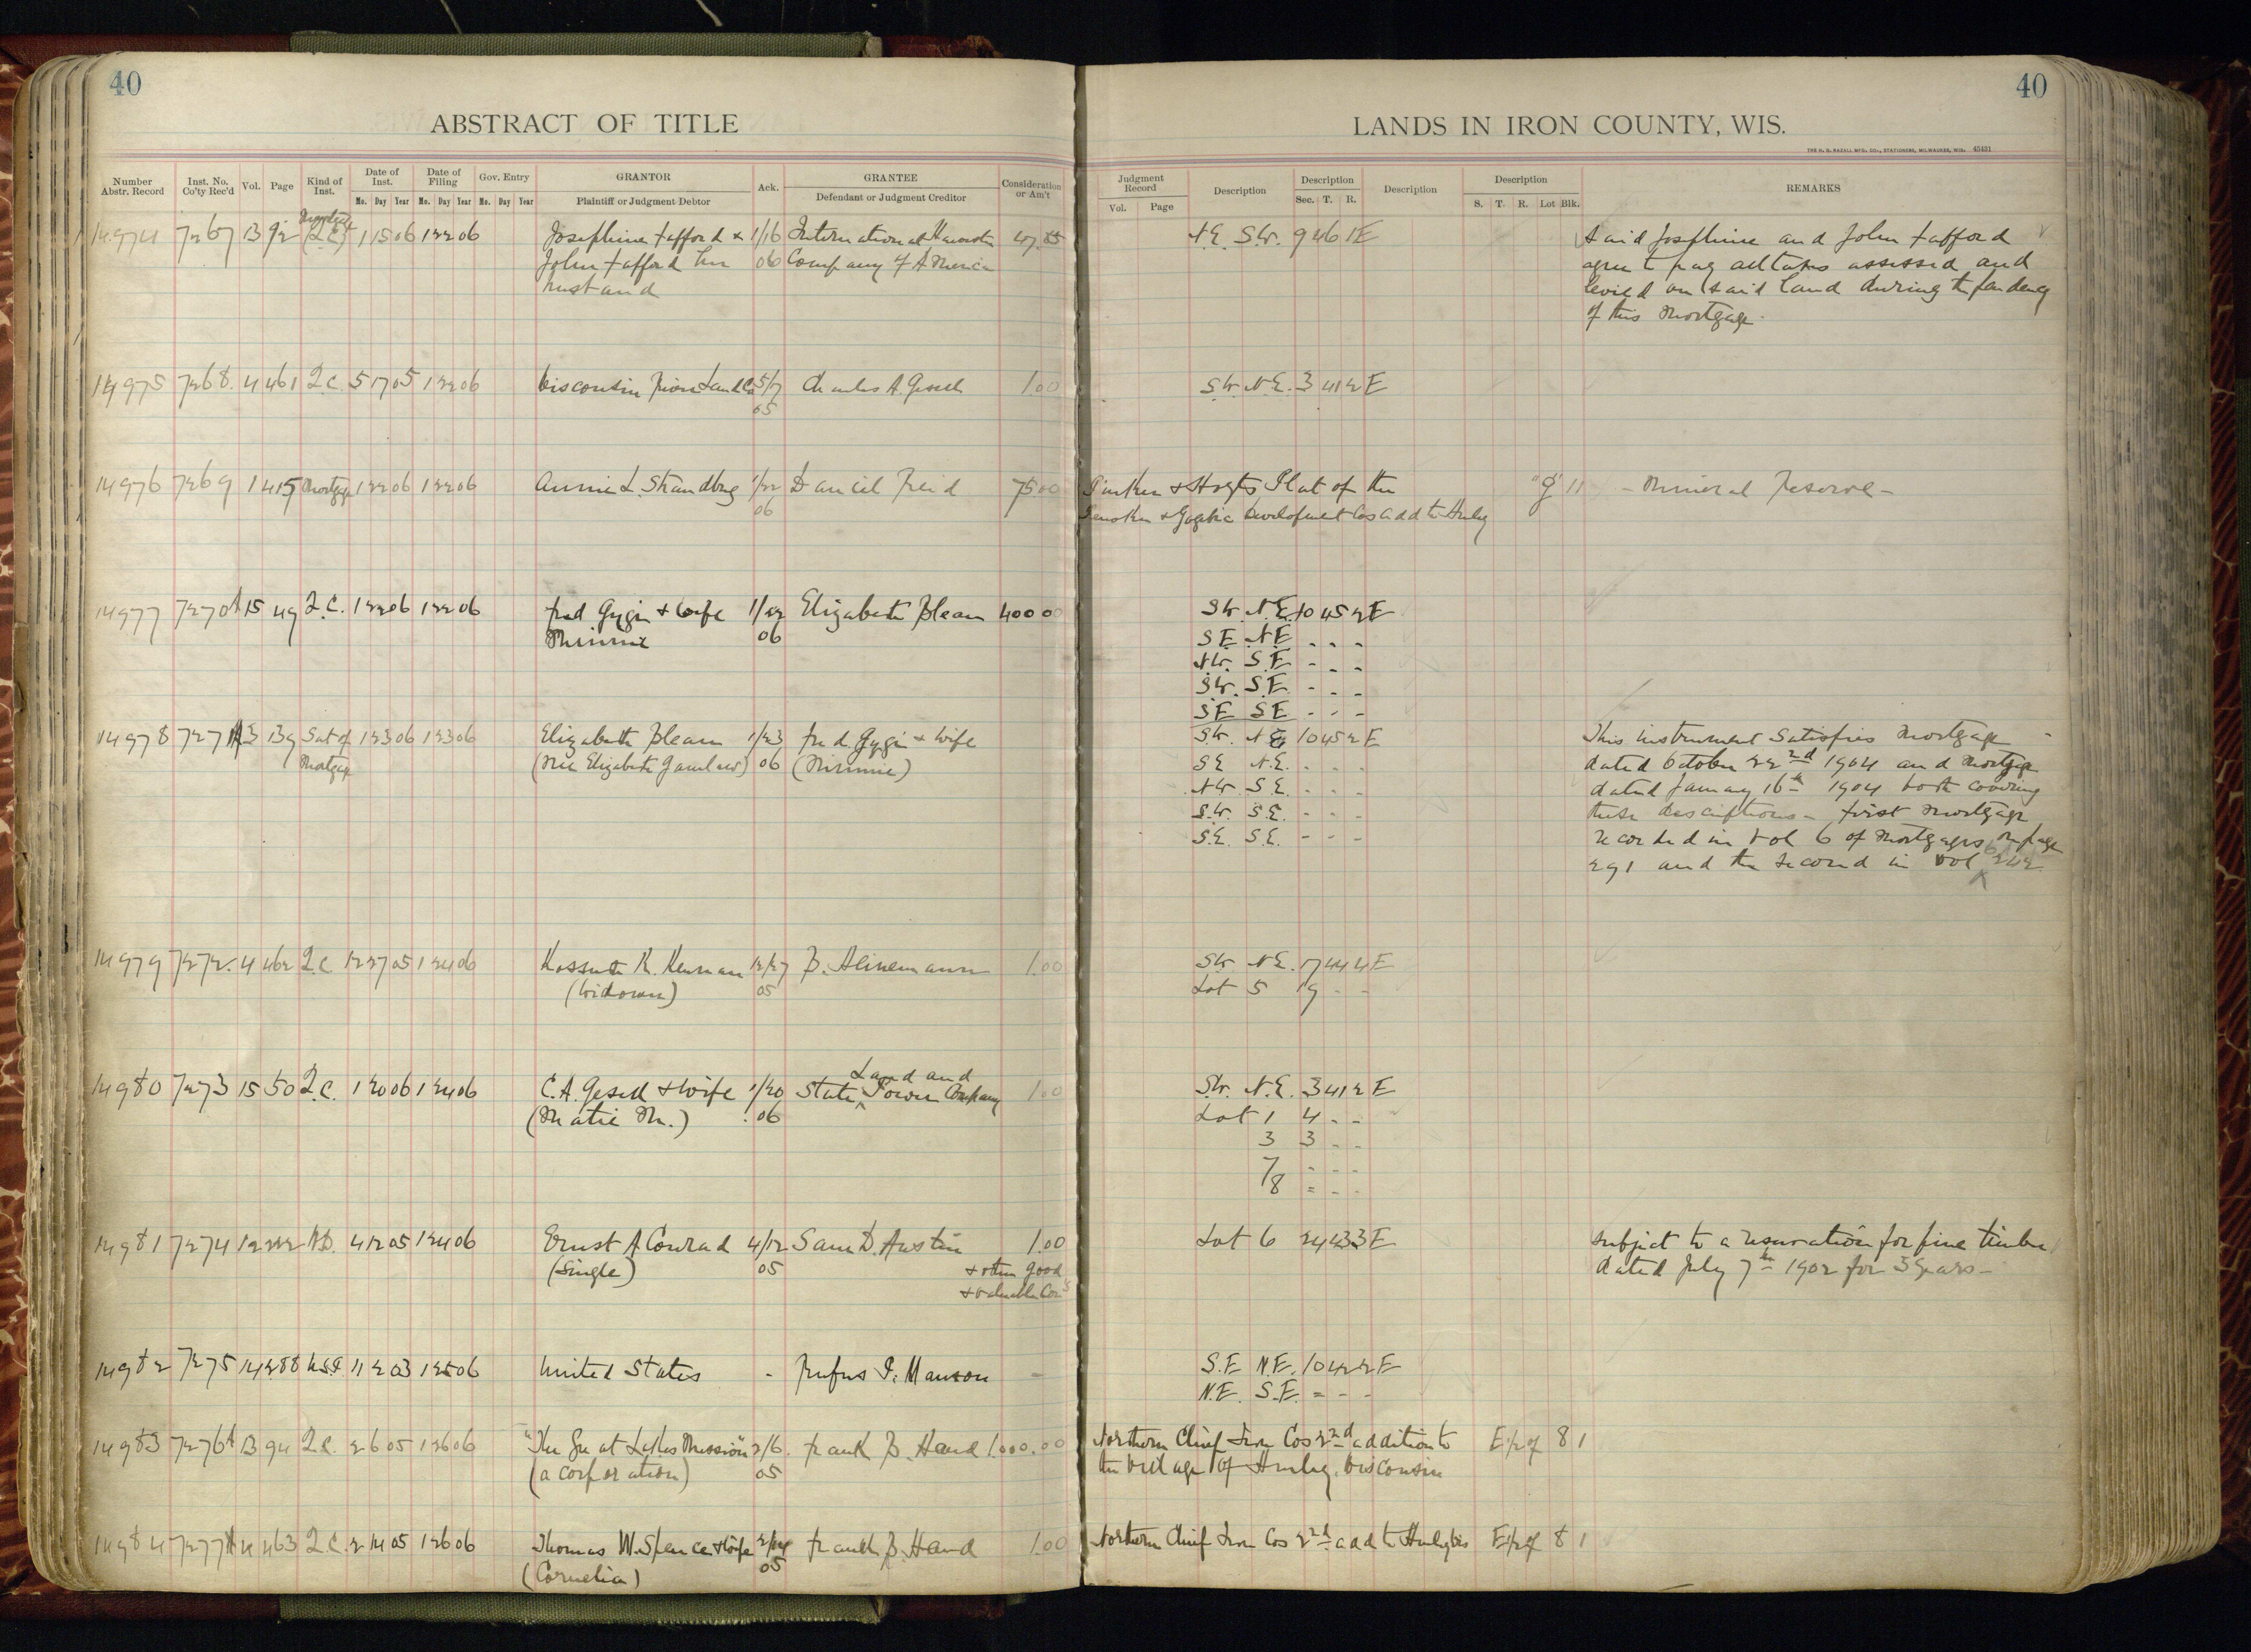 40
40
ABSTRACT OF TITLE
LANDS IN IRON COUNTY, WIS.
THE H. G. RAZALL MFG. CO., STATIONERS, MILWAUKEE, WIS. 45431
Number Abstr. Record Inst. No. Co'ty Rec'd Vol. Page Kind of Inst. Date of Inst. Date of Filing Gov. Entry GRANTOR Ack. GRANTEE Consideration or Am't
Mo. Day Year Mo. Day Year Mo. Day Year Plaintiff or Judgment Debtor Defendant or Judgment Creditor
Judgment Record Description Description Description Description REMARKS
Vol. Page Sec. T. R. S. T. R. Lot Blk.
14974 7267 13 92 (Q.C.) 1 15 06 1 22 06 Josephine Tafford & 1/16 International Harvester 47 85 N.E. S.W. 9 46 1E Said Josephine and John Tafford
John Tafford her 06 Company of America agree to pay all taxes assessed and
husband levied on said land during the pendency
of this Mortgage.
14975 7268. 4 461 Q.C. 5 17 05 1 22 06 Wisconsin River Land Co 5/17 Charles A. Gesell 1.00 S.W. N.E. 3 41 2 E
05
14976 7269 1 415 Mortgage 1 22 06 1 22 06 Annie L. Strandberg 1/22 Daniel Reid 75 00 Plat of the "g" 11 - Mineral Reserve -
06 & Gogebic Development Cos add to Hurley
14977 7270 15 49 Q.C. 1 22 06 1 22 06 Fred Gygi & Wife 1/22 Elizabeth Bleam 400 00 S.W. N.E. 10 45 2 E
Minnie 06 S E N.E. - - -
N.W. S.E. - - -
S.W. S.E. - - -
S E S E - - -
14978 7271 13 139 Sat of 1 23 06 1 23 06 Elizabeth Bleam 1/23 Fred Gygi & Wife S.W. N E 10 45 2 E This instrument Satisfies Mortgage
Mortgage (Nee Elizabeth) 06 (Minnie) S E N.E. - - - dated October 22nd 1904 and Mortgage
N.W. S.E. - - - dated January 16th 1904 both covering
S.W. S.E. - - - these descriptions - first Mortgage
S.E. S.E. - - - recorded in Vol 6 of Mortgages on page
291 and the second in Vol 6 242
14979 7272. 4 462 Q.C. 12 27 05 1 24 06 Kossuth K. Kennan 12/27 B. Heinemann 1.00 S.W. N.E. 17 44 4 E
(Widower) 05 Lot 5 19 - -
Land and
14980 7273 15 50 Q.C. 1 20 06 1 24 06 C.A. Gesell & Wife 1/20 State Power Company 1.00 S.W. N.E. 3 41 2 E
(Matie M.) 06 Lot 1 4 - -
3 3 - -
7 - - -
8 = - -
14981 7274 12 222 W.D. 4 12 05 1 24 06 Ernst A Conrad 4/12 Sam D. Austin 1.00 Lot 6 24 43 3 E Subject to a reservation for pine timber
(Single) 05 & other good dated July 7th 1902 for 5 years -
& valuable Cons
14982 7275 14 288 U.S.P. 11 2 03 1 25 06 United States - Rufus P. Manson - S.E N.E. 10 42 2 E
N.E. S.E. = - -
14983 7276 13 94 Q.C. 2 6 05 1 26 06 "The Great Lakes Mission" 2/6. Frank B. Hand 1.000.00 Northern Chief Iron Cos 2nd addition to E 1/2 of 8 1
(a corporation) 05 the Village of Hurley, Wisconsin
14984 7277 4 463 Q.C. 2 14 05 1 26 06 Thomas W. Spence & Wife 2/14 Frank B. Hand 1.00 Northern Chief Iron Cos 2nd add to Hurley Wis E 1/2 of 8 1
(Cornelia) 05